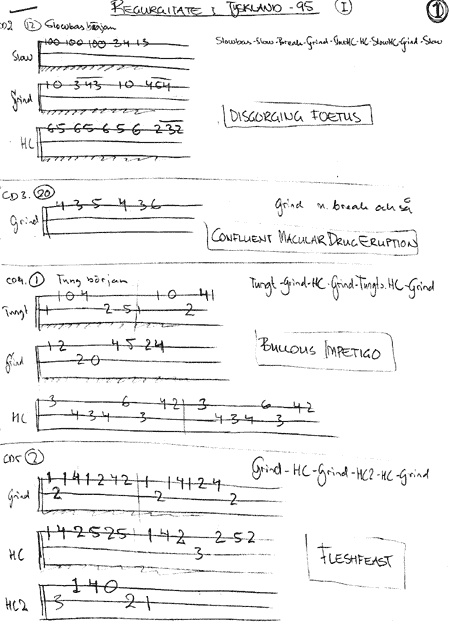 REGURGITATE I TYSKLAND -95 (I) 1
CD2 (12) Slowbas början
Slow 100 100 100 34 13
Slowbas-Slow-Break-Grind-SlowHC-HC-SlowHC-Grind-Slow
Grind 10 343 10 464
DISGORGING FOETUS
HC 65 65 6 5 6 232
CD3. (20)
Grind 4 3 5 4 3 6
Grind n. break och så
CONFLUENT MACULAR DRUG ERUPTION
CD4. (1) Tung början
Tungt-Grind-HC-Grind-Tungt-HC-Grind
Tungt 1 0 4 1 0 41
1 2-5 1 2
Grind 12 45 24
20
BULLOUS IMPETIGO
HC 3 6 42 3 6 42
4 3 4 3 4 3 4 3
CD5 (2)
Grind-HC-Grind-HC2-HC-Grind
Grind 1 1 4 1 2 4 2 1 1 4 1 2 4
2 2 2
HC 1 4 2 5 2 5 1 4 2 2 5 2
3
FLESHFEAST
HC2 1 4 0
3 2 1